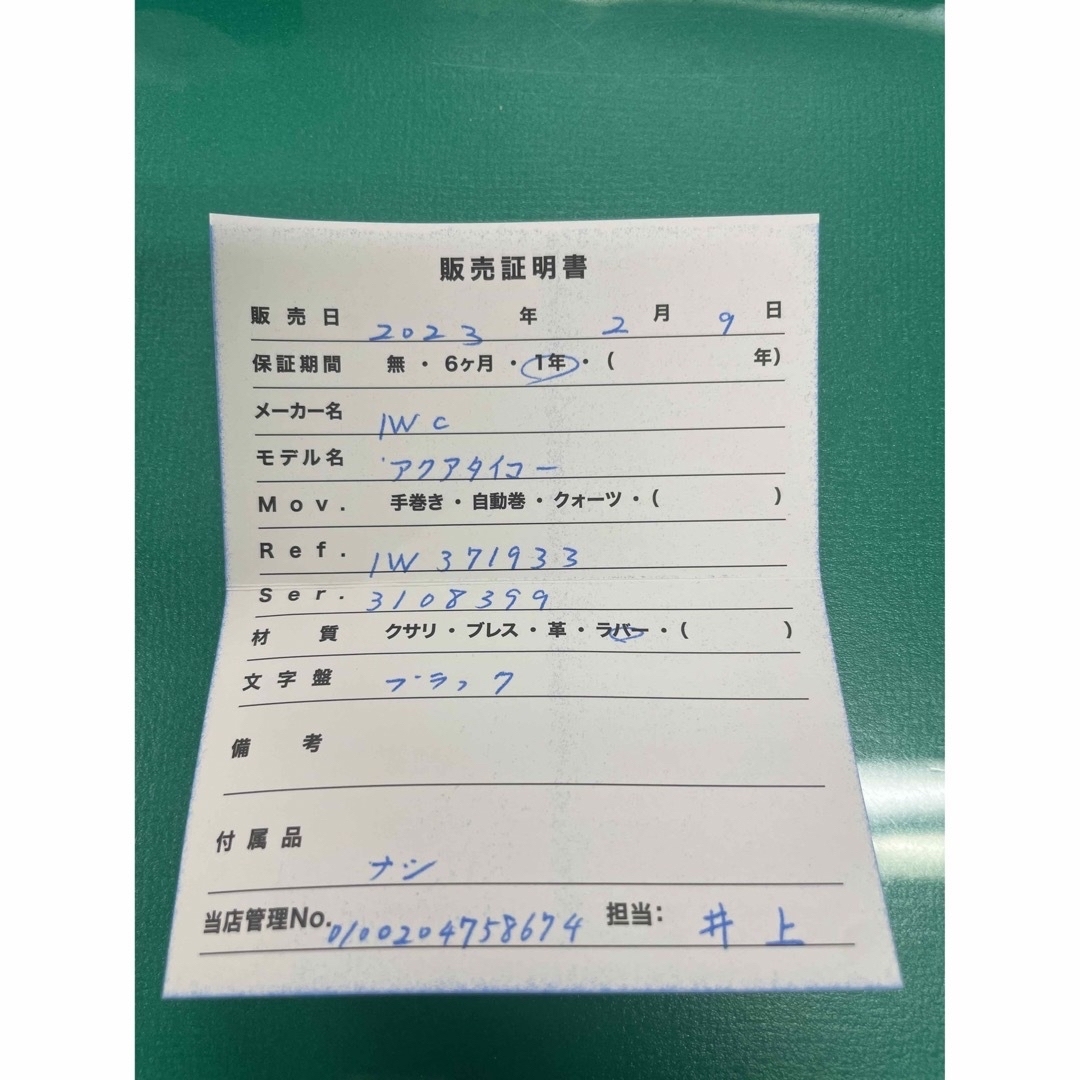 販売証明書
販売日 2023 年 2 月 9 日
保証期間 無・6ヶ月・1年・( 年)
メーカー名 IWC
モデル名 アクアタイマー
Mov. 手巻き・自動巻・クォーツ・( )
Ref. IW371933
Ser. 3108399
材質 クサリ・ブレス・革・ラバー・( )
文字盤 ブラック
備考
付属品 ナシ
当店管理No. 0100204758674 担当: 井上